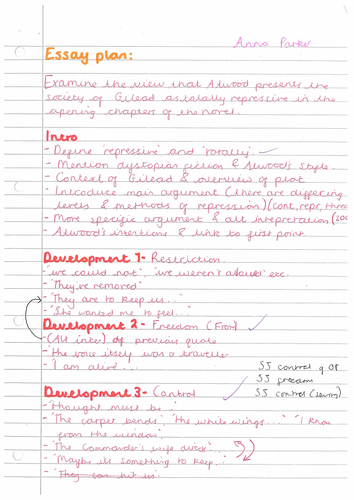 Anna Parker
Essay plan:
Examine the view that Atwood presents the
society of Gilead as totally repressive in the
opening chapters of the novel.
Intro
- Define 'repressive' and 'totally'
- Mention dystopian fiction & Atwood's style
- Context of Gilead & overview of plot
- Introduce main argument (there are differing
levels & methods of repression) (cont, repr,
- More specific argument & alt intepretation
- Atwood's intentions & link to first point
Development 1- Restriction
- 'we could not', 'we weren't allowed' etc.
- 'They've removed'
- 'They are to keep us...'
- 'She wanted me to feel...'
Development 2 - Freedom (From)
- (Alt inter) of previous quote
- 'The voice itself was a traveller'
- 'I am alive'...
SJ control
SJ
SJ control
Development 3- Control
- 'thought must be...'
- 'The carpet bends' 'the white wings...' 'I know
from the window'
- 'The Commander's wife directs...'
- 'Maybe its something to keep...'
- 'They can hit us'